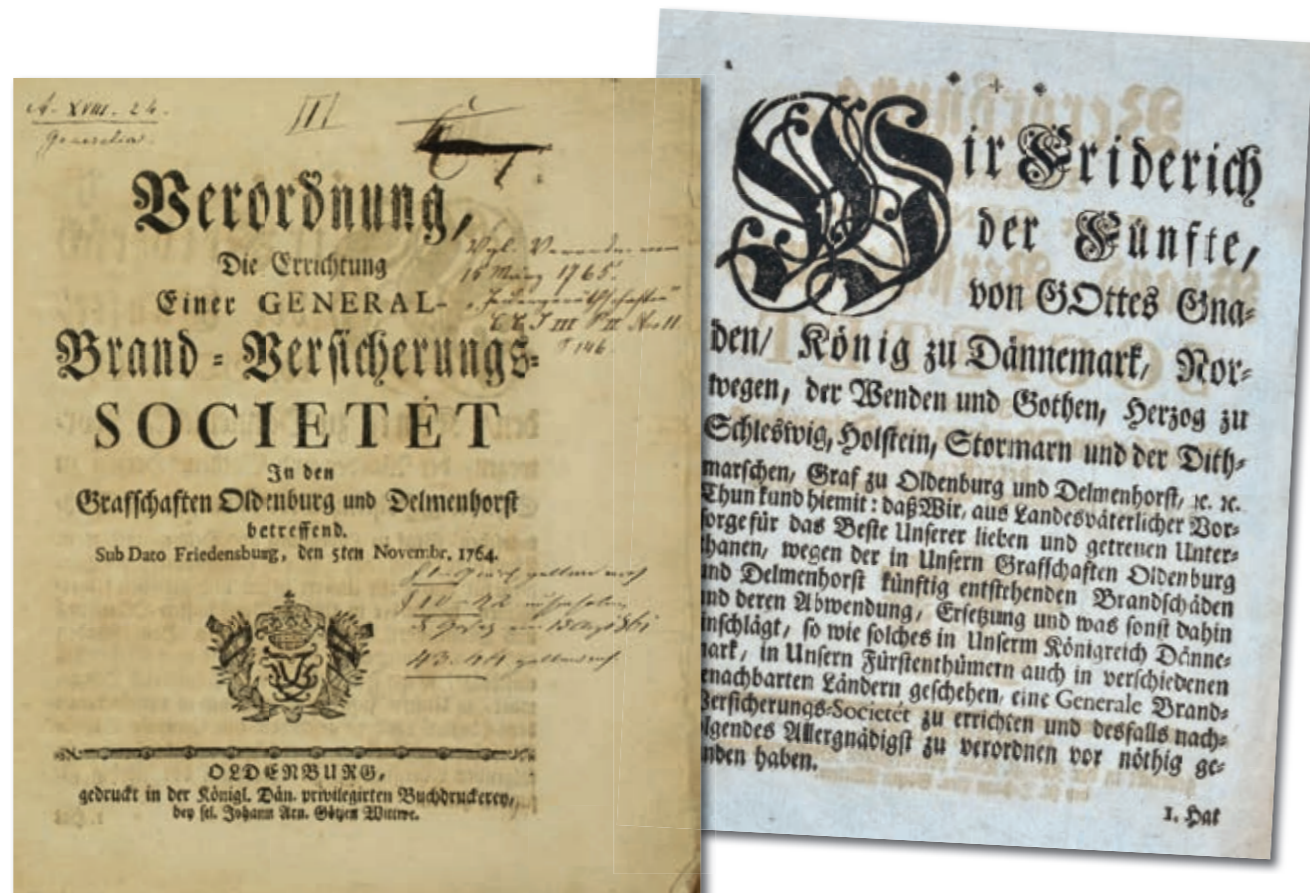 A. XVIII. 24.
III
Verordnung,
Die Errichtung
Einer GENERAL-
Brand - Versicherungs-
SOCIETÉT
In den
Grafschaften Oldenburg und Delmenhorst
betreffend.
Sub Dato Friedensburg, den 5ten Novembr. 1764.
15 März 1765.
146.
OLDENBURG,
gedruckt in der Königl. Dän. privilegirten Buchdruckerey,
bey sel. Johann Arn. Götzen Wittwe.
Wir Friderich
der Fünfte,
von GOttes Gna-
den/ König zu Dännemark, Nor-
wegen, der Wenden und Gothen, Herzog zu
Schleswig, Holstein, Stormarn und der Dith-
marschen, Graf zu Oldenburg und Delmenhorst, ꝛc. ꝛc.
Thun kund hiemit: daß Wir, aus Landesväterlicher Vor-
sorge für das Beste Unserer lieben und getreuen Unter-
thanen, wegen der in Unsern Grafschaften Oldenburg
und Delmenhorst künftig entstehenden Brandschäden
und deren Abwendung, Ersetzung und was sonst dahin
einschlägt, so wie solches in Unserm Königreich Dänne-
mark, in Unsern Fürstenthümern auch in verschiedenen
benachbarten Ländern geschehen, eine Generale Brand-
Versicherungs-Societét zu errichten und desfalls nach-
folgendes Allergnädigst zu verordnen vor nöthig ge-
funden haben.
1. Hat